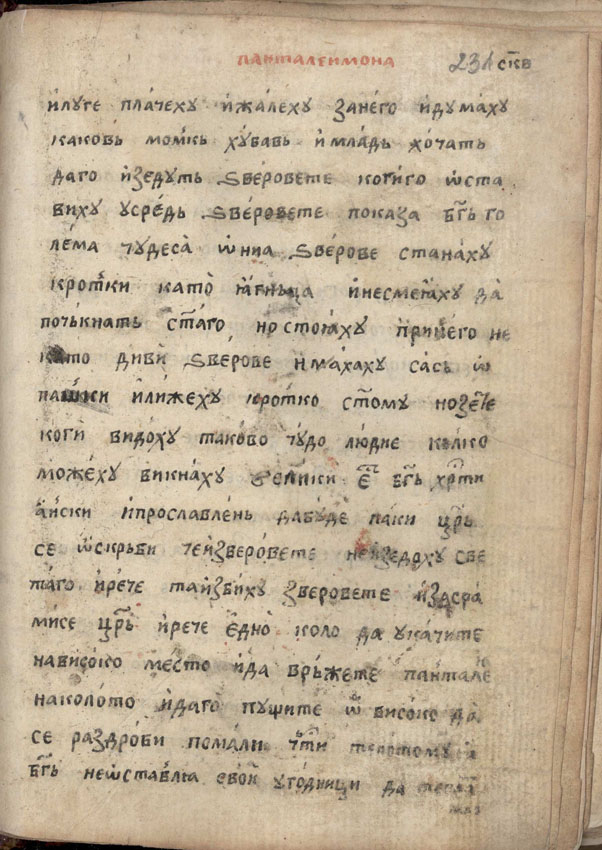 панталеимона 231 скв
и луге плачеху и жалеху занего и думаху
каковь момкь хубавь и младь хочать
даго изедуть ѕверовете когиго ѡста
виху усредь ѕверовете показа бг҃ь го
лема чудеса ѡниа ѕверове станаху
кротки като ꙗгньца и несмеꙗху да
почькнать ст҃аго, но стоꙗху при него не
като диви ѕверове и махаху сась ѡ
пашки и лижеху кротко ст҃ому нозете
коги видоху таково чудо людие колко
можеху викнаху велики е҃ бг҃ь хр҃ти
ански и прославлень дабуде паки цр҃ь
се ѡскрьби чеизверовете неизедоху све
таго и рече таизбиху зверовете издсра
мисе цр҃ь и рече едно коло да укачите
нависоко место и да врьжете пантале
наколото и даго пущите ѿ високо да
се раздроби помали части
бг҃ь неѡставлꙗ свои угодници да